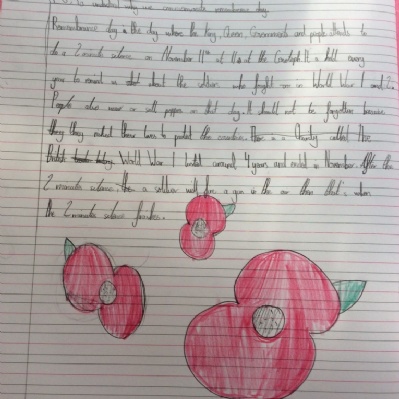 to understand why we commemorate remembrance day
Remembrance day is the day where the King, Queen, Governments and people attends to
do a 2 minute silence on November 11th at 11 at the Cenotaph. It is held every
year to remind us about the soldiers who fought in World War 1 and 2.
People also wear or sell poppies on that day. It should not be forgotten because
they they risked there lives to protect the countries. There is a Charity called The
British World War 1 lasted around 4 years and ended in November. After the
2 minutes silence a soldier will fire a gun in the air then that's when
the 2 minutes silence finishes.